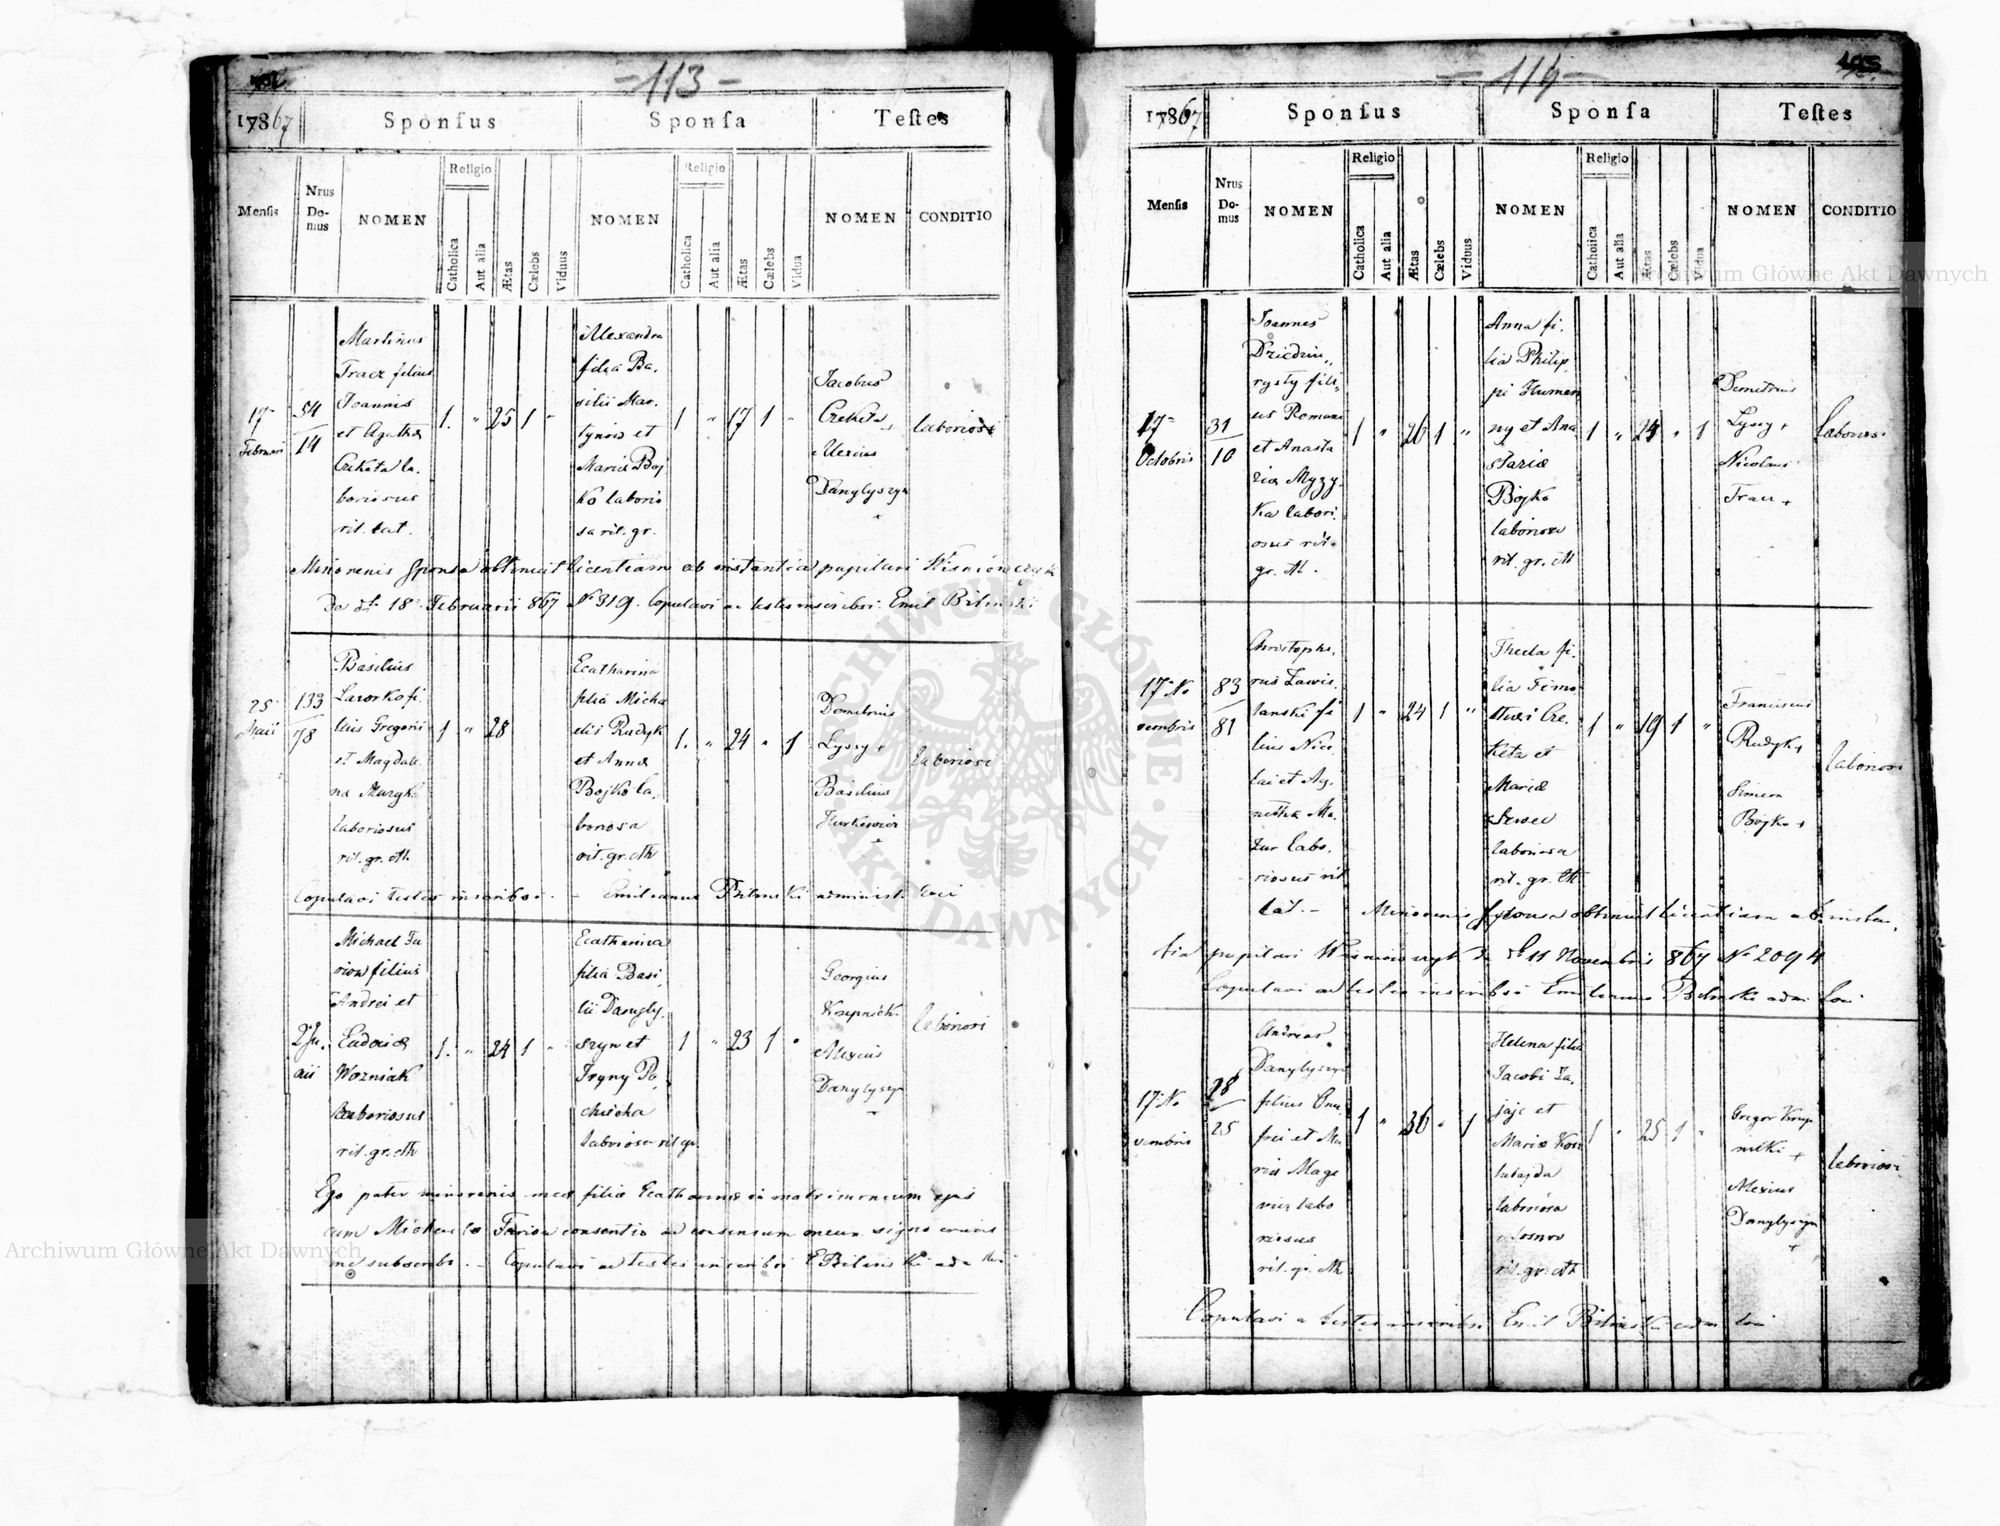 - 113 -
17867
Sponſus
Sponſa
Teſtes
Menſis
Nrus Do-mus
NOMEN
Religio
Catholica
Aut alia
Ætas
Cælebs
Viduus
NOMEN
Religio
Catholica
Aut alia
Ætas
Cælebs
Vidua
NOMEN
CONDITIO
17
Februarii
54
14
Martinus
Tracz filius
Joannis
et Agatha
Czekcta la.
boriosus
rit. lat.
1. " 25 1 "
Alexandra
filia Ba.
silii Mar.
tynow et
Maria Boj
ko laborio
sa rit. gr.
1 " 17 1 "
Jacobus
Alexius
Danylyszyn
+
laboriosi
Minorenis sponsa obtinuit licentiam ab instantia pupilari Wisniowczyk
de dt 18 Februarii 867 N 319. Copulavi ac testes inscribsi. Emil Bilinski
25
Maii
133
78
Basilius
Laworko fi.
lius Gregorii
et Magdale
na Muryka
laboriosus
rit. gr. cth.
1 " 28
Ecatharina
filia Micha
elis Rudyk
et Anna
Bojko la.
boriosa
rit. gr. cth
1. " 24 " 1
Demetrius
Lyssy +
Basilius
Hurkiewicz
+
laboriosi
Copulavi testes inscribsi. - Emilianus Bilinski administ. loci
2 Ju.
nii
Michael Fa
rion filius
Andrei et
Eudocia
Wozniak
laboriosus
rit. gr. cth
1. " 24 1 "
Ecatharina
filia Basi,
lii Danyly.
szyn et
Iryny Po,
chicha
laboriosa rit gr.
1 " 23 1 "
Georgius
Krupnicki
Alexius
Danylyszyn
laboriosi
Ego pater minorenis mea filia Ecatharina in matrimonium ejus
cum Michaele Farion consentio ac consensum meum signo crucis
me subscribo. - Copulavi ac testes inscribsi E Bilinski adm loci
- 114 -
17867
Sponſus
Sponſa
Teſtes
Menſis
Nrus Do-mus
NOMEN
Religio
Catholica
Aut alia
Ætas
Cælebs
Viduus
NOMEN
Religio
Catholica
Aut alia
Ætas
Cælebs
Vidua
NOMEN
CONDITIO
17
Octobris
31
10
Joannes
Dziedzin,,
rysty fili,,
us Romani
et Anasta
zia Myzy.
ka labori.
osus rit.
gr. cth.
1 " 26 1 "
Anna fi.
lia Philip,
pi Humen
ny et Ana
stazia
Bojko
laboriosa
rit. gr. cth
1 " 24 " 1
Demetrius
Lyssy +
Nicolaus
Tracz +
laboriosi
17 No
vembris
83
81
Christopho,
rus Zawis.
lanski fi
lius Nico,
lai et Ag.
netha Ma.
zur labo,
riosus rit
lat. -
1 " 24 1 "
Thecla fi.
lia Timo
thei Cze.
keta et
Maria
Szwec
laboriosa
rit. gr. cth
1 " 19 1 "
Franciscus
Rudyk +
Simeon
Bojko +
laboriosi
Minorenis sponsa obtinuit licentiam ab instan,
tia pupilari Wisniowczyk de dt 11 Novembris 867 N 2094
Copulavi ac testes inscribsi Emilianus Bilinski adm loci
17 No
vembris
28
25
Andreas
Danylyszyn
filius Onu,
frei et Ma
ria Mage
laboriosus
rit. gr. cth
1 " 36 " 1
Helena filia
Jacobi Za,
jaje et
Maria
laboriosa
rit. gr. cth
1 " 25 1 "
Gregor Krup
nicki +
Alexius
Danylyszyn
+
laboriosi
Copulavi a testes inscribsi Emil Bilinski adm loci
Archiwum Główne Akt Dawnych
Archiwum Główne Akt Dawnych
ARCHIWUM GŁÓWNE · AKT DAWNYCH ·